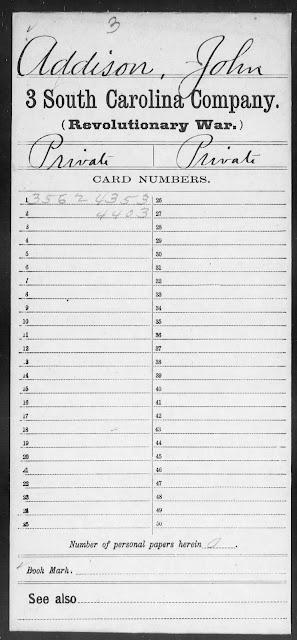 3
Addison, John
3 South Carolina Company.
(Revolutionary War.)
Private Private
CARD NUMBERS.
1 3562 4353 26
2 4403 27
3 28
4 29
5 30
6 31
7 32
8 33
9 34
10 35
11 36
12 37
13 38
14 39
15 40
16 41
17 42
18 43
19 44
20 45
21 46
22 47
23 48
24 49
25 50
Number of personal papers herein 0.
Book Mark.
See also